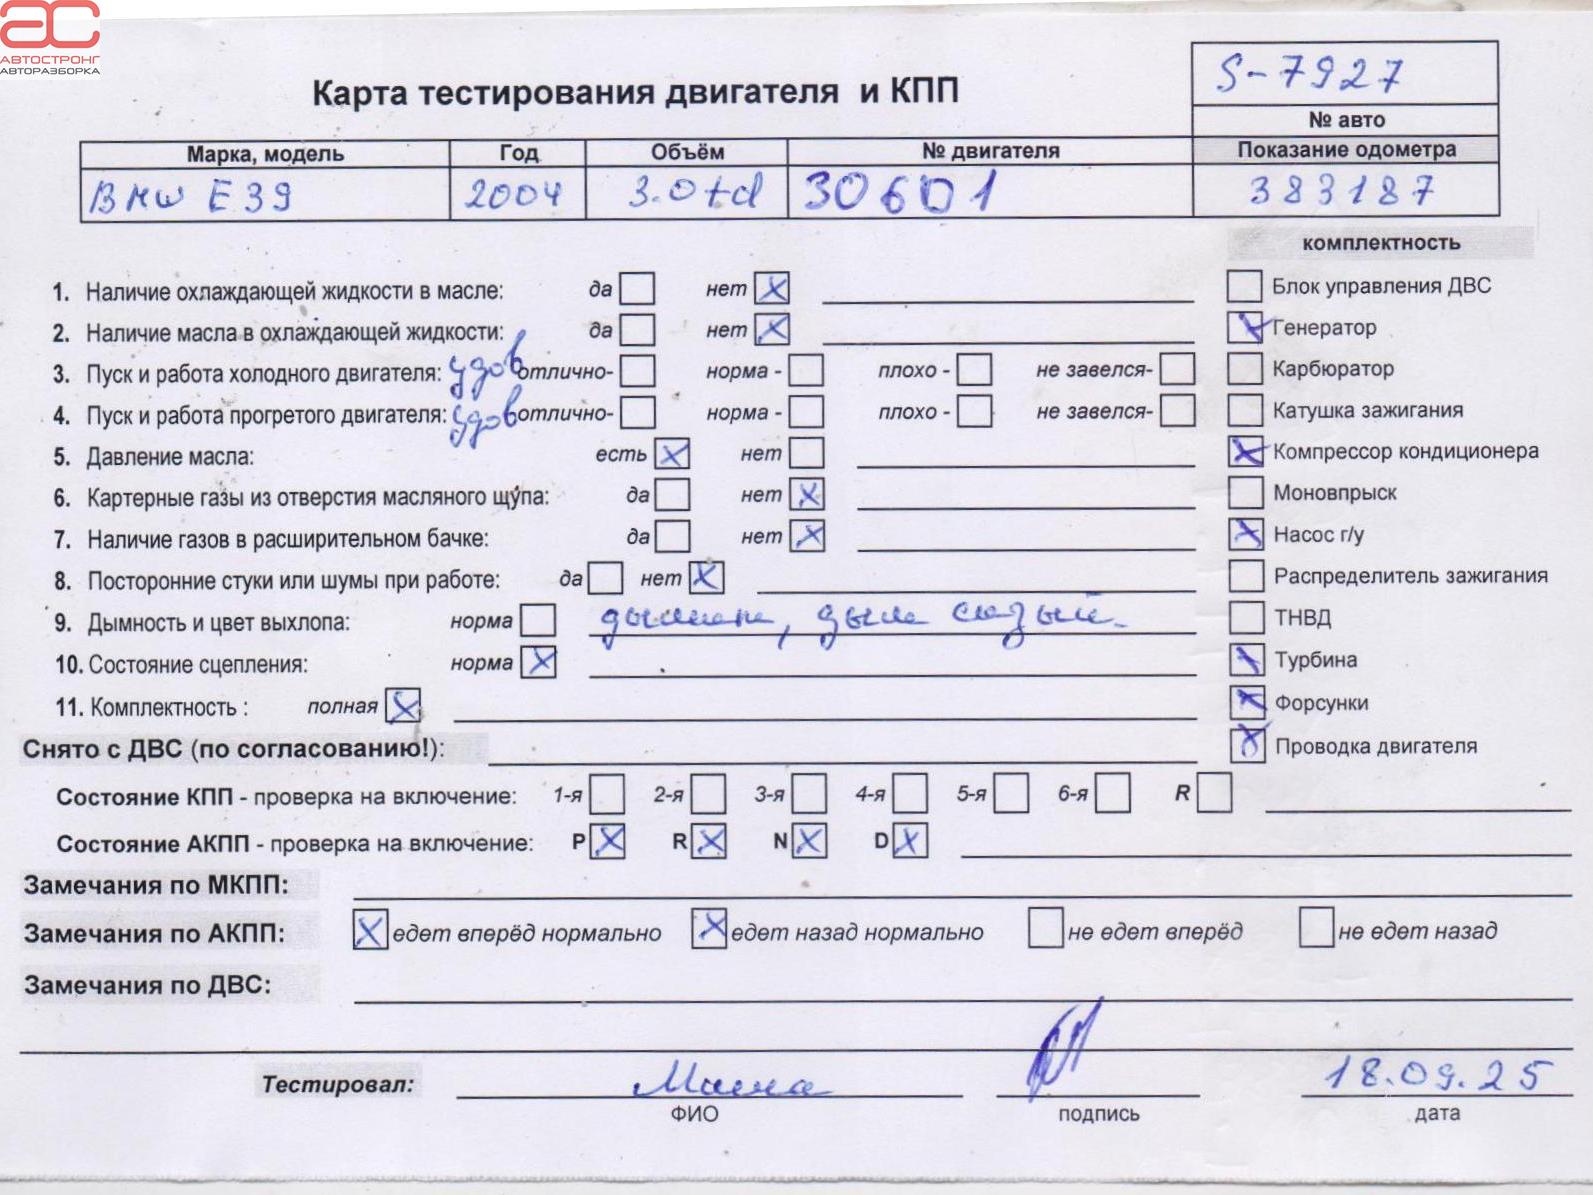 АВТОСТРОНГ
АВТОРАЗБОРКА
Карта тестирования двигателя и КПП
S-7927
№ авто
Марка, модель Год Объём № двигателя Показание одометра
BMW E39 2004 3.0td 30601 383187
комплектность
1. Наличие охлаждающей жидкости в масле: да нет Блок управления ДВС
2. Наличие масла в охлаждающей жидкости: да нет Генератор
3. Пуск и работа холодного двигателя: удов отлично- норма - плохо - не завелся- Карбюратор
4. Пуск и работа прогретого двигателя: удов отлично- норма - плохо - не завелся- Катушка зажигания
5. Давление масла: есть нет Компрессор кондиционера
6. Картерные газы из отверстия масляного щупа: да нет Моновпрыск
7. Наличие газов в расширительном бачке: да нет Насос г/у
8. Посторонние стуки или шумы при работе: да нет Распределитель зажигания
9. Дымность и цвет выхлопа: норма дым сизый. ТНВД
10. Состояние сцепления: норма Турбина
11. Комплектность : полная Форсунки
Снято с ДВС (по согласованию!): Проводка двигателя
Состояние КПП - проверка на включение: 1-я 2-я 3-я 4-я 5-я 6-я R
Состояние АКПП - проверка на включение: P R N D
Замечания по МКПП:
Замечания по АКПП: едет вперёд нормально едет назад нормально не едет вперёд не едет назад
Замечания по ДВС:
Тестировал: 18.09.25
ФИО подпись дата